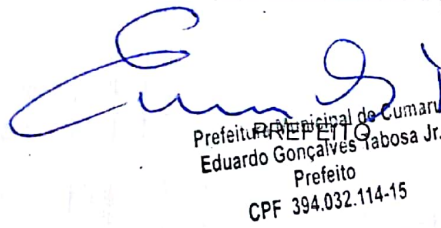 PREFEITO
Prefeitura Municipal de Cumaru
Eduardo Gonçalves Tabosa Jr.
Prefeito
CPF 394.032.114-15